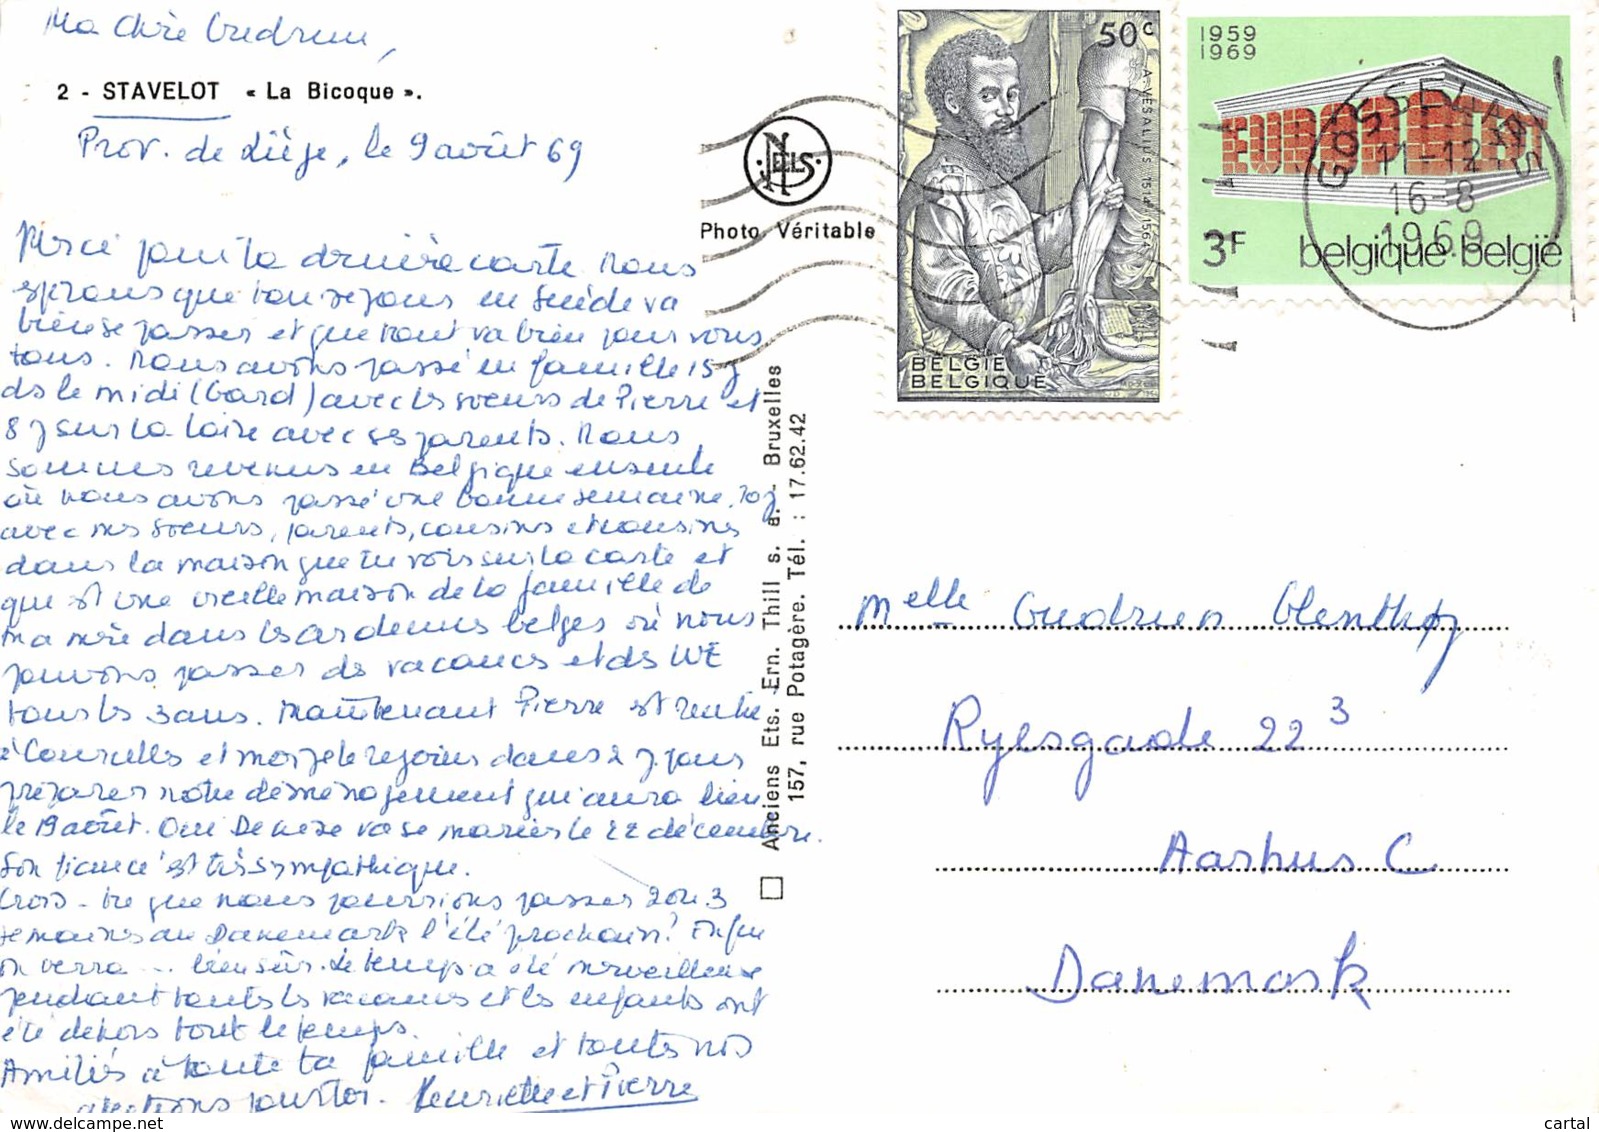 Ma Chère Gudrun,
2 - STAVELOT « La Bicoque ».
Prov. de Liège, le 9 août 69
Merci pour ta dernière carte. Nous
espérons que ton séjour en Suède va
bien se passer et que tout va bien pour vous
tous. Nous avons passé en famille 15 j
ds le midi (Gard) avec les soeurs de Pierre et
8 j sur la Loire avec ses parents. Nous
sommes revenus en Belgique ensuite
où nous avons passé une bonne semaine, 10 j
avec mes soeurs, parents, cousins et cousines
dans la maison que tu vois sur la carte et
qui est une vieille maison de la famille de
ma mère dans les ardennes belges où nous
pouvons passer des vacances et des WE
tous les 3 ans. Maintenant Pierre est rentré
à Courcelles et moi je le rejoins dans 2 j. pour
préparer notre déménagement qui aura lieu
le 19 août. Oui Denise va se marier le 22 décembre.
Son fiancé est très sympathique.
Crois-tu que nous pourrions passer 2 ou 3
semaines au Danemark l'été prochain? Enfin
on verra ... bien sûr. Le temps a été merveilleux
pendant toutes les vacances et les enfants ont
été dehors tout le temps.
Amitiés à toute ta famille et toutes nos
affections pour toi. Henriette et Pierre
NELS
Photo Véritable
Anciens Ets. Ern. Thill s. a. - Bruxelles
157, rue Potagère. Tél. : 17.62.42
50c
A. VESALIUS 1514-1564
BELGIE
BELGIQUE
1959
1969
EUROPA CEPT
3F
belgique belgië
GOSSELIES
11-12
16-8
1969
Melle Gudrun
Ryesgade 22 3
Aarhus C
Danemark
cartal